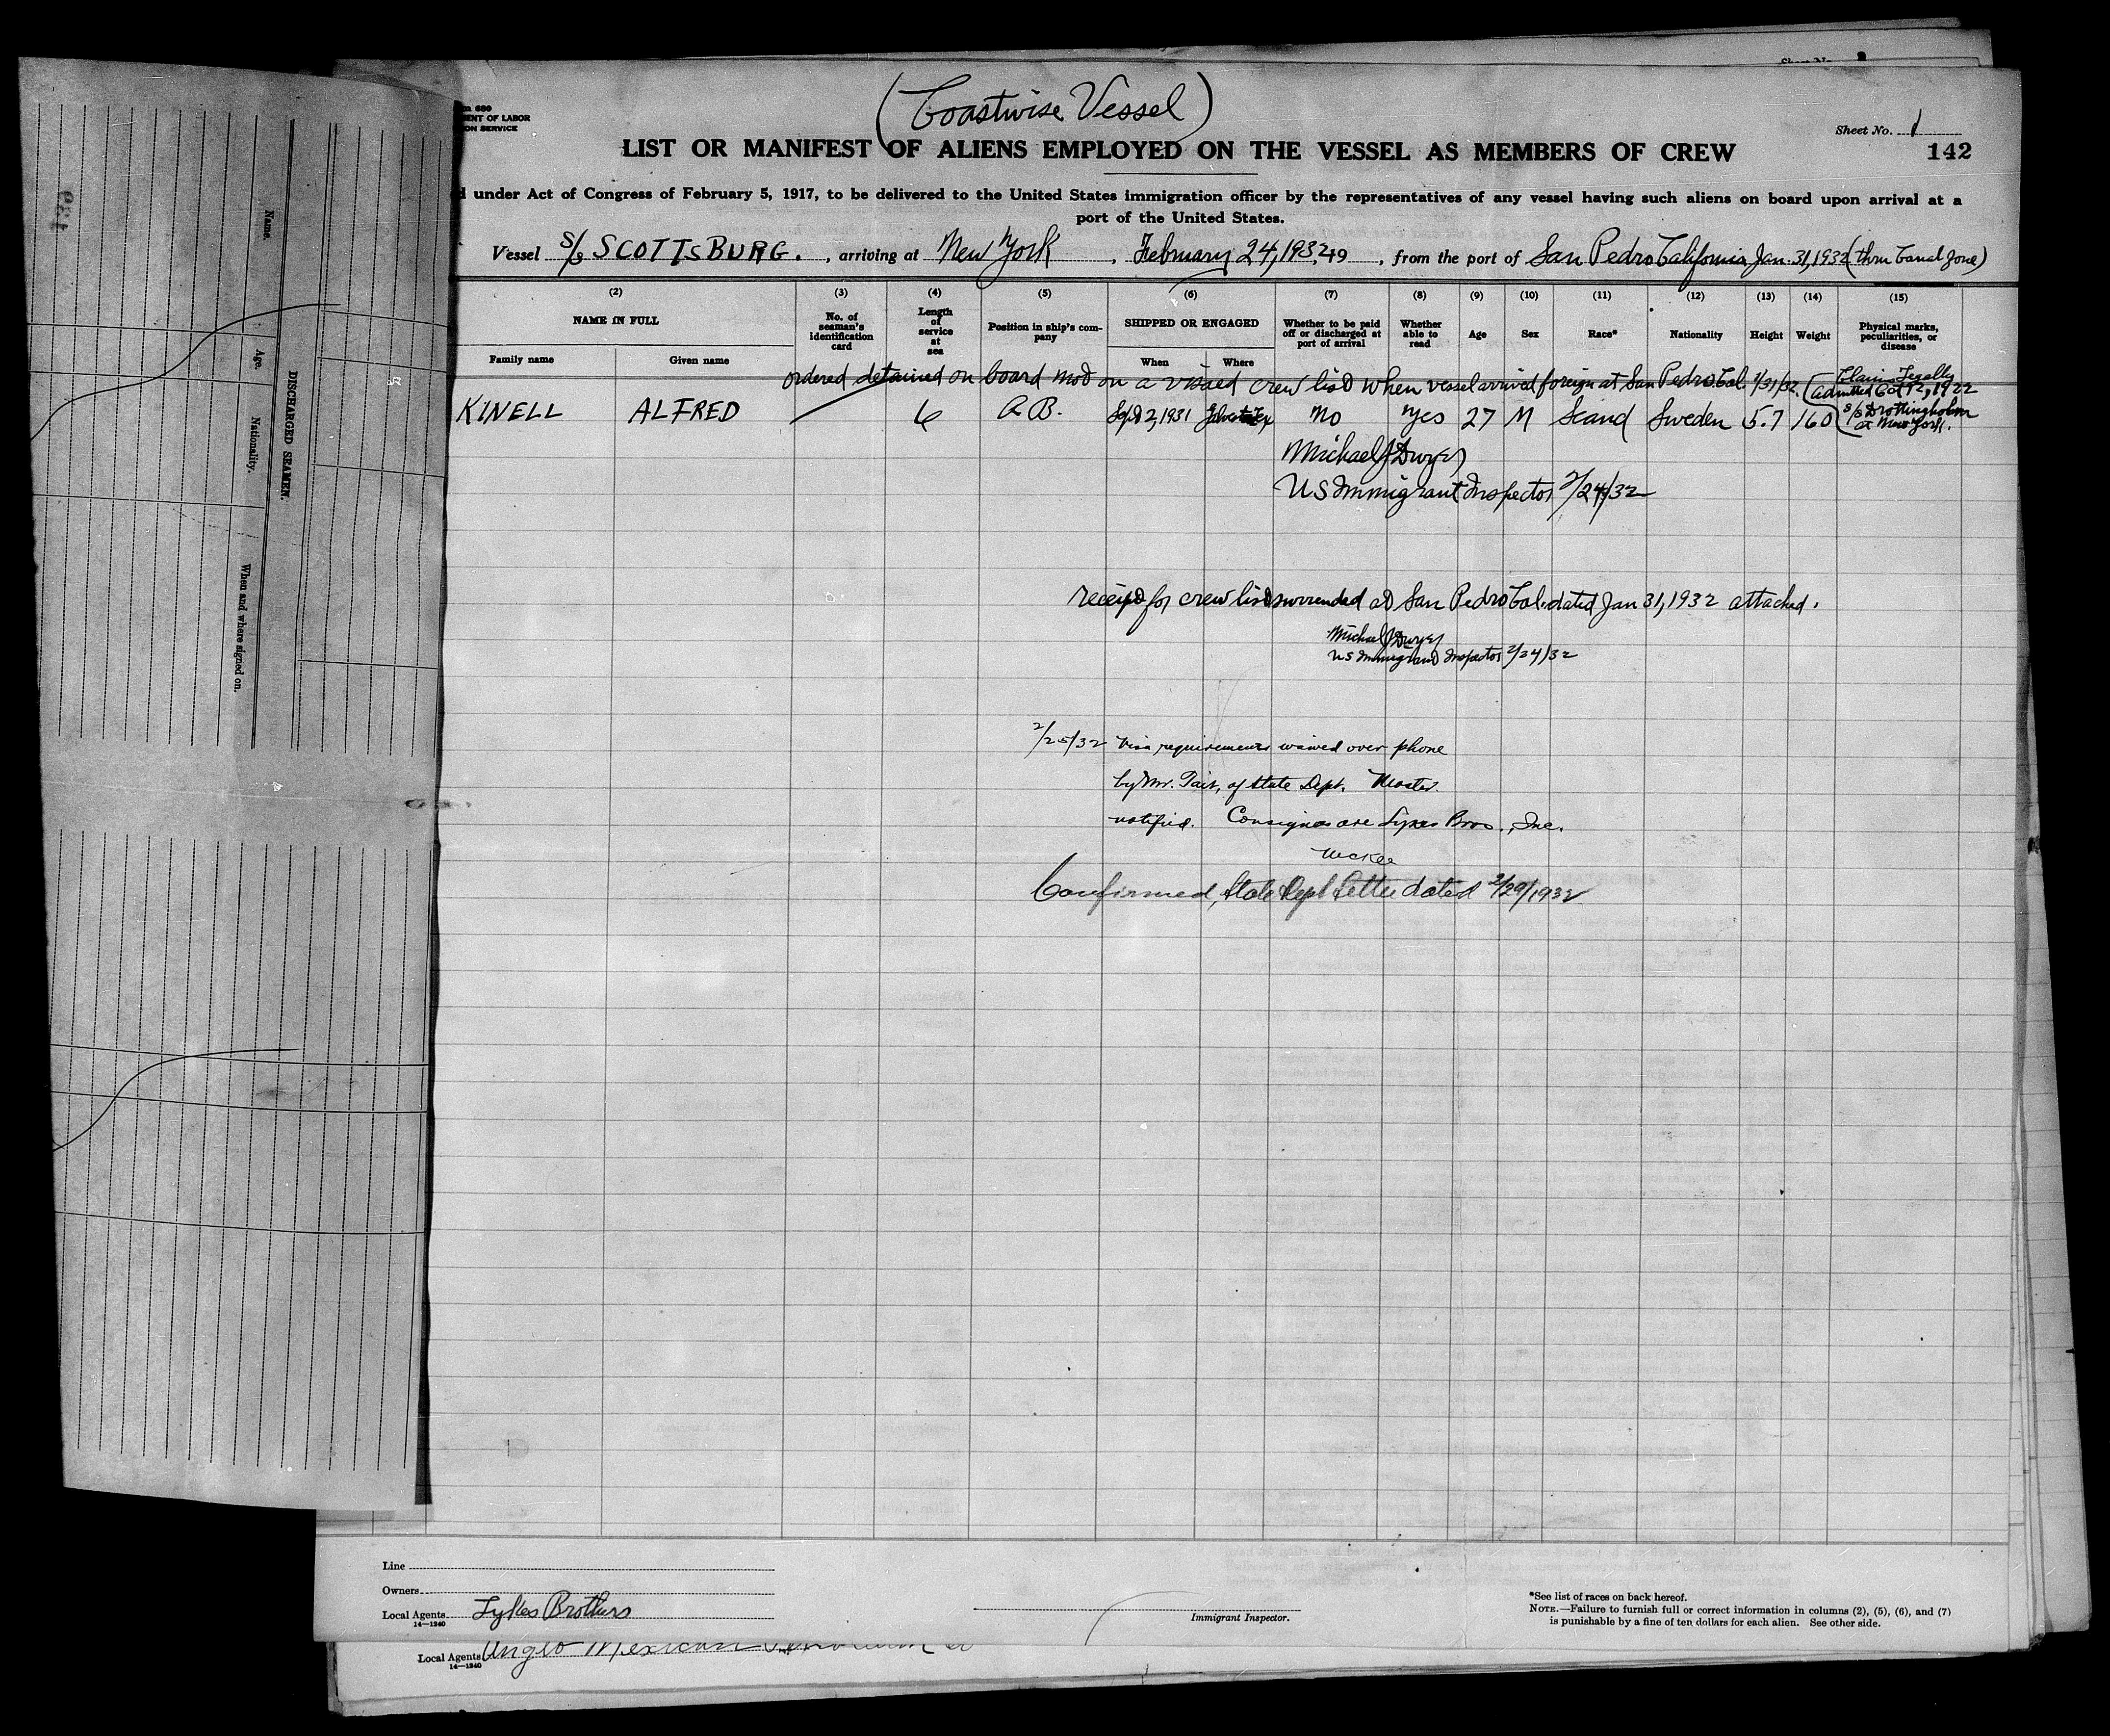 (Coastwise Vessel)
Sheet No. 1
ENT OF LABOR
ON SERVICE
142
LIST OR MANIFEST OF ALIENS EMPLOYED ON THE VESSEL AS MEMBERS OF CREW
d under Act of Congress of February 5, 1917, to be delivered to the United States immigration officer by the representatives of any vessel having such aliens on board upon arrival at a
port of the United States.
Vessel S/S SCOTTSBURG. , arriving at New York , February 24, 1932, 19 , from the port of San Pedro California Jan. 31, 1932 (thru Canal Zone)
(2) (3) (4) (5) (6) (7) (8) (9) (10) (11) (12) (13) (14) (15)
NAME IN FULL
Family name Given name
No. of seaman's identification card
Length of service at sea
Position in ship's company
SHIPPED OR ENGAGED
When Where
Whether to be paid off or discharged at port of arrival
Whether able to read
Age
Sex
Race*
Nationality
Height
Weight
Physical marks, peculiarities, or disease
ordered detained on board not on a visaed crew list when vessel arrived foreign at San Pedro Cal. 1/31/32.
Claims Legally
admitted Oct 12, 1922
S/S Drottingholm
at New York.
KINELL ALFRED 6 A.B. Sept 2, 1931 No Yes 27 M Scand Sweden 5.7 160
Michael J Dwyer
US Immigrant Inspector 2/24/32
receipt for crew list surrended at San Pedro Cal. dated Jan 31, 1932 attached.
Michael J Dwyer
US Immigrant Inspector 2/24/32
2/25/32 Visa requirements waived over phone
by Mr. Tait, of State Dept. Master
notified. Consignees are Lykes Bros., Inc.
McKee
Confirmed, State Dept Letter dated 2/29/1932
DISCHARGED SEAMEN.
Name.
Age.
Nationality.
When and where signed on.
Line
Owners
Local Agents Lykes Brothers
14—1240
Immigrant Inspector.
*See list of races on back hereof.
NOTE.—Failure to furnish full or correct information in columns (2), (5), (6), and (7)
is punishable by a fine of ten dollars for each alien. See other side.
Local Agents Anglo Mexican Petroleum Co
14—1240